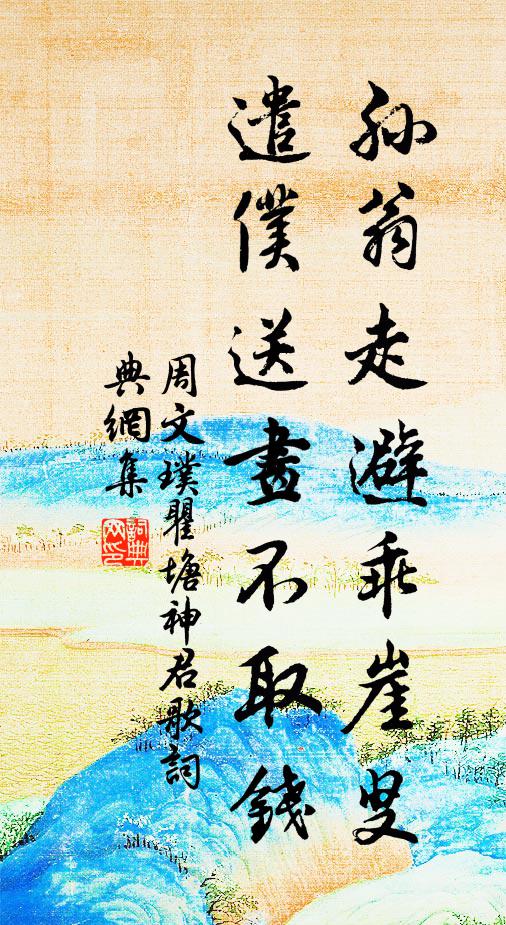 孙翁走避乖崖叟
遣僕送畫不取錢
周文璞瞿塘神君歌詞
典網集
詞典
网印